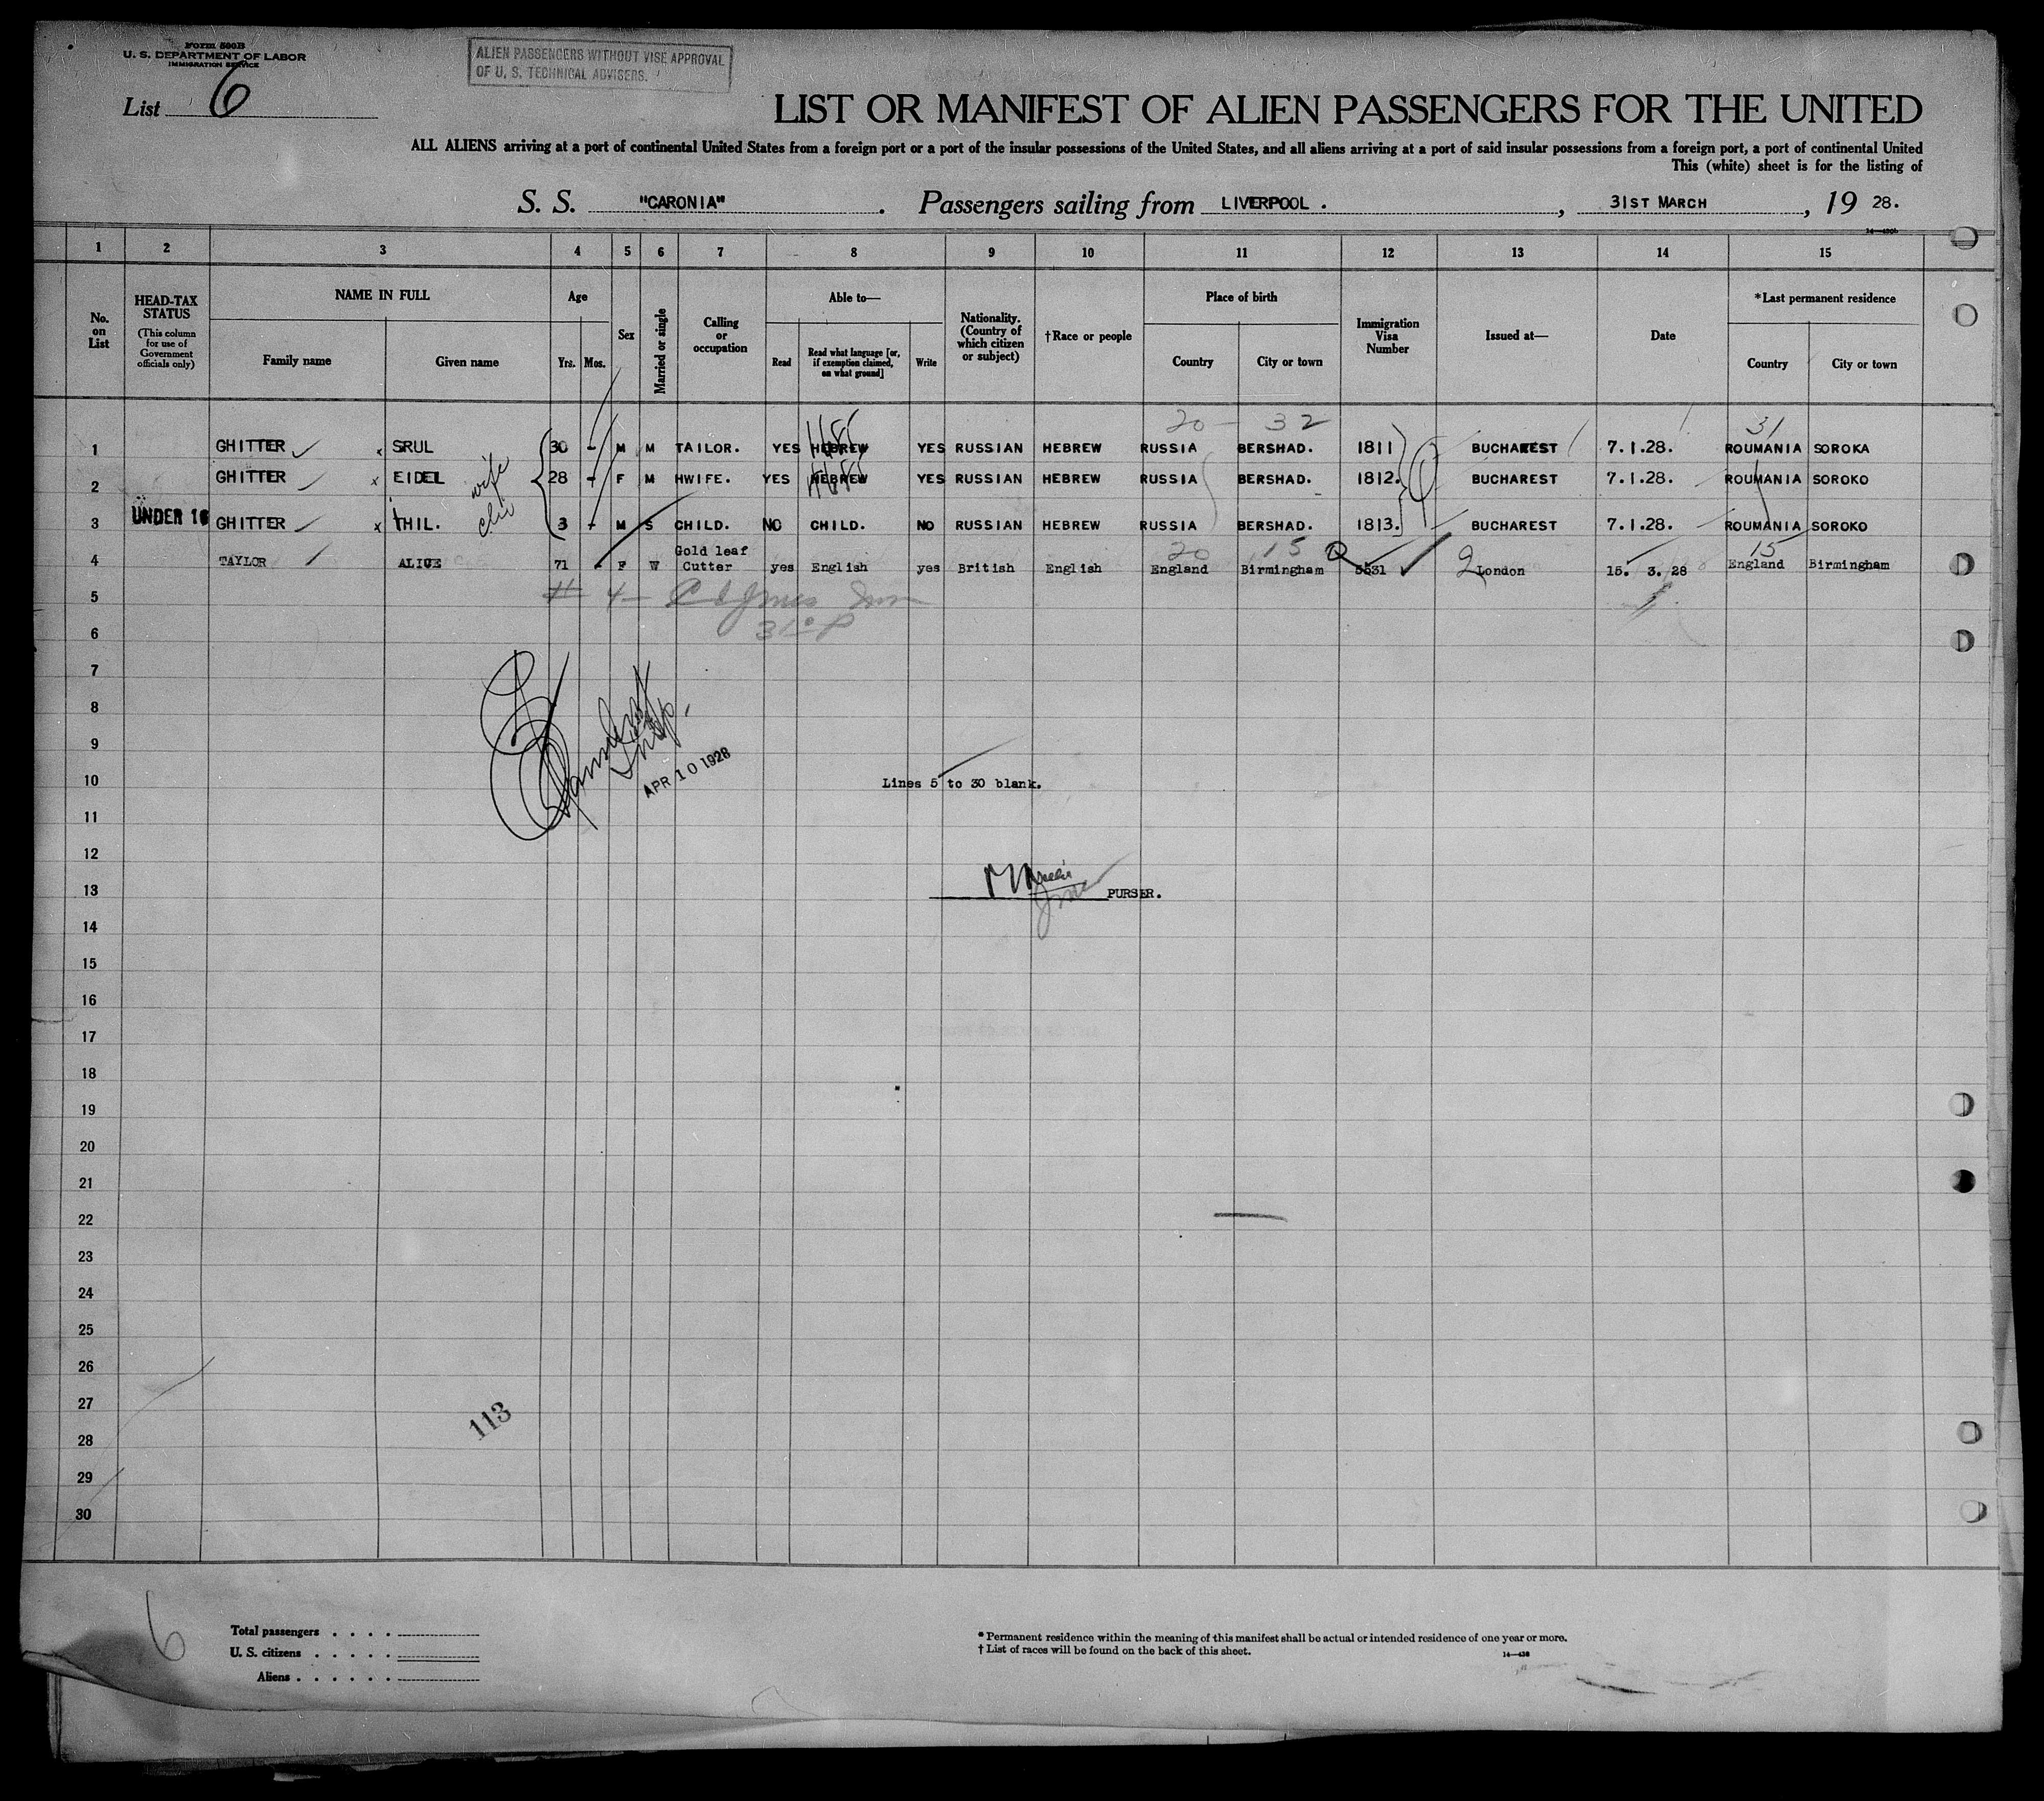 Form 500B
U. S. DEPARTMENT OF LABOR
IMMIGRATION SERVICE
ALIEN PASSENGERS WITHOUT VISE APPROVAL
OF U. S. TECHNICAL ADVISERS.
List 6
LIST OR MANIFEST OF ALIEN PASSENGERS FOR THE UNITED
ALL ALIENS arriving at a port of continental United States from a foreign port or a port of the insular possessions of the United States, and all aliens arriving at a port of said insular possessions from a foreign port, a port of continental United
This (white) sheet is for the listing of
S. S. "CARONIA" . Passengers sailing from LIVERPOOL . , 31ST MARCH , 19 28.
1 2 3 4 5 6 7 8 9 10 11 12 13 14 15
No. on List
HEAD-TAX STATUS
(This column for use of Government officials only)
NAME IN FULL
Family name
Given name
Age
Yrs.
Mos.
Sex
Married or single
Calling or occupation
Able to—
Read
Read what language [or, if exemption claimed, on what ground]
Write
Nationality. (Country of which citizen or subject)
†Race or people
Place of birth
Country
City or town
Immigration Visa Number
Issued at—
Date
*Last permanent residence
Country
City or town
20 - 32 31
1 GHITTER SRUL 30 - M M TAILOR. YES HEBREW YES RUSSIAN HEBREW RUSSIA BERSHAD. 1811 BUCHAREST 7.1.28. ROUMANIA SOROKA
2 GHITTER EIDEL wife 28 - F M HWIFE. YES HEBREW YES RUSSIAN HEBREW RUSSIA BERSHAD. 1812. BUCHAREST 7.1.28. ROUMANIA SOROKO
UNDER 16
3 GHITTER THIL. 3 - M S CHILD. NO CHILD. NO RUSSIAN HEBREW RUSSIA BERSHAD. 1813. BUCHAREST 7.1.28. ROUMANIA SOROKO
20 15 15
4 TAYLOR ALICE 71 - F W Gold leaf Cutter yes English yes British English England Birmingham 5531 London 15. 3. 28 England Birmingham
5
6
7
8
9
10 Lines 5 to 30 blank.
APR 10 1928
11
12
13 PURSER.
14
15
16
17
18
19
20
21
22
23
24
25
26
27
113
28
29
30
6
Total passengers . . . .
U. S. citizens . . . . .
Aliens . . . . . .
* Permanent residence within the meaning of this manifest shall be actual or intended residence of one year or more.
† List of races will be found on the back of this sheet.
14—438